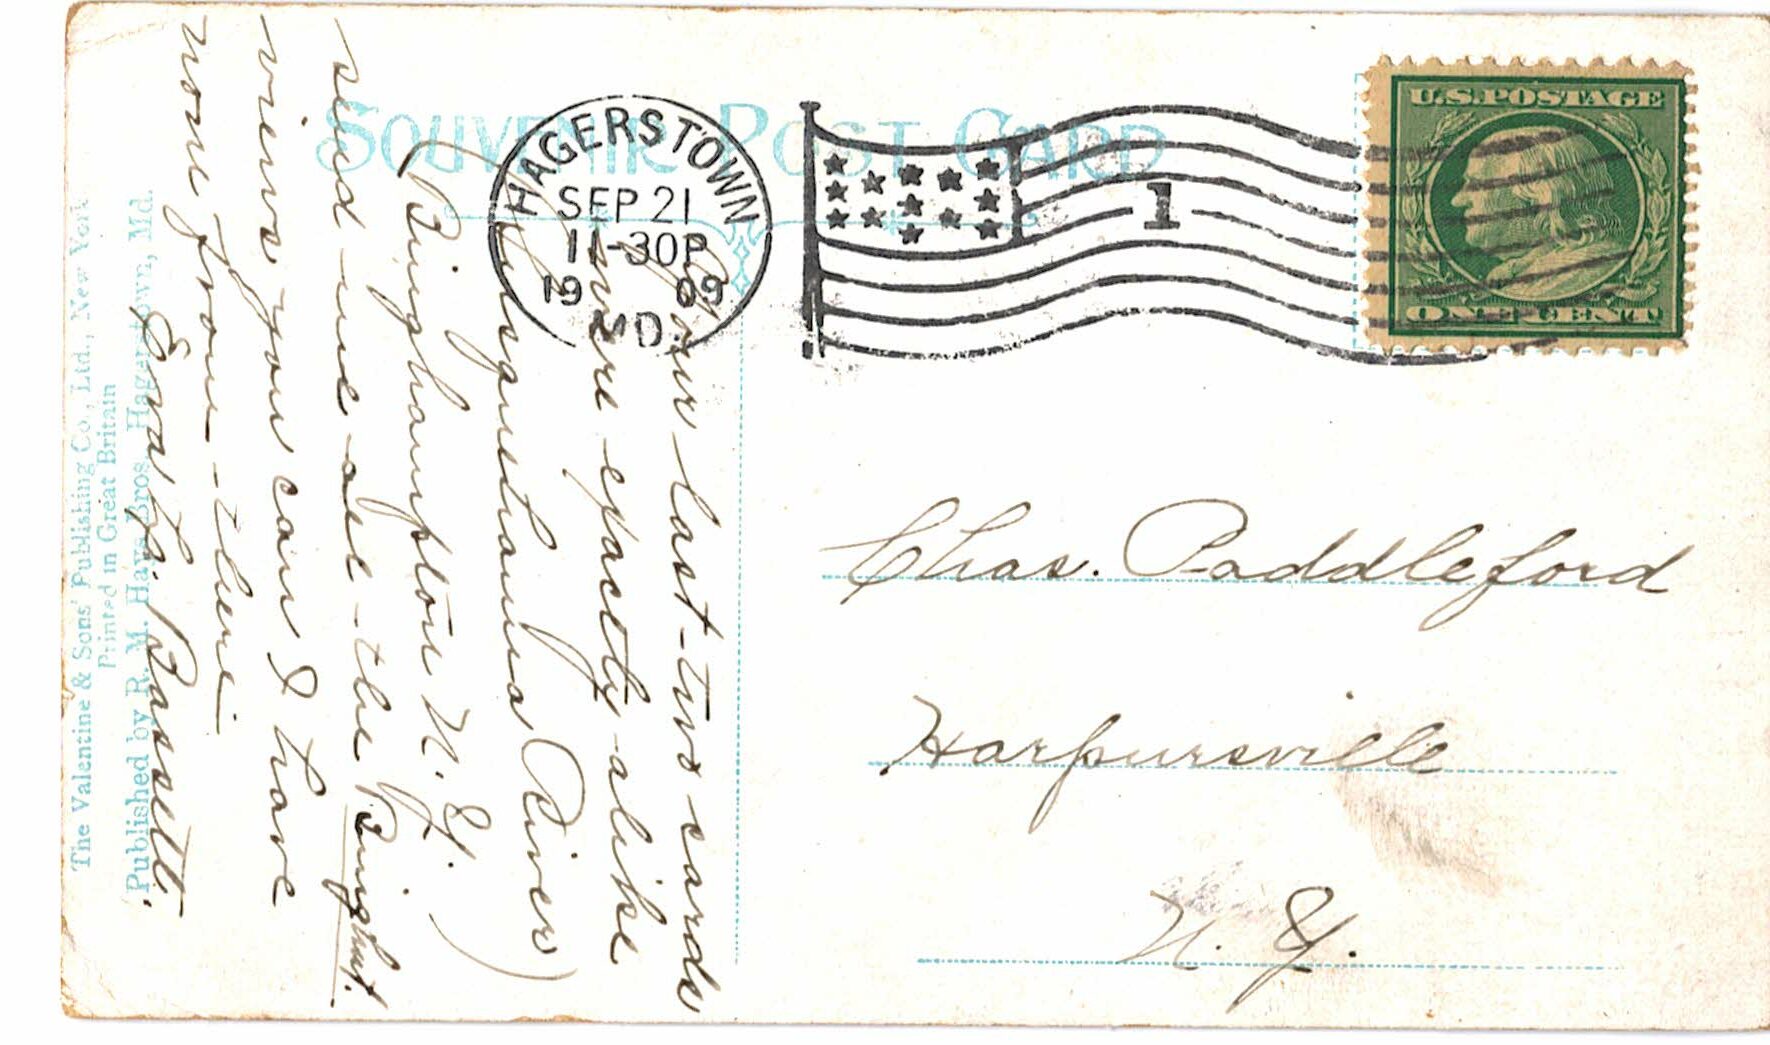 SOUVENIR POST CARD
HAGERSTOWN
SEP 21
11-30P
19 09
MD.
1
U.S. POSTAGE
ONE CENT
Your last two cards
were exactly alike
(Susquehanna River)
(Binghampton N. Y.)
send me all the Binghpt.
views you can I have
none from there
Eva L. Bassett.
Chas. Paddleford
Harpursville
N. Y.
Published by R. M. Hays Bros. Hagerstown, Md.
Printed in Great Britain
The Valentine & Sons' Publishing Co., Ltd., New York